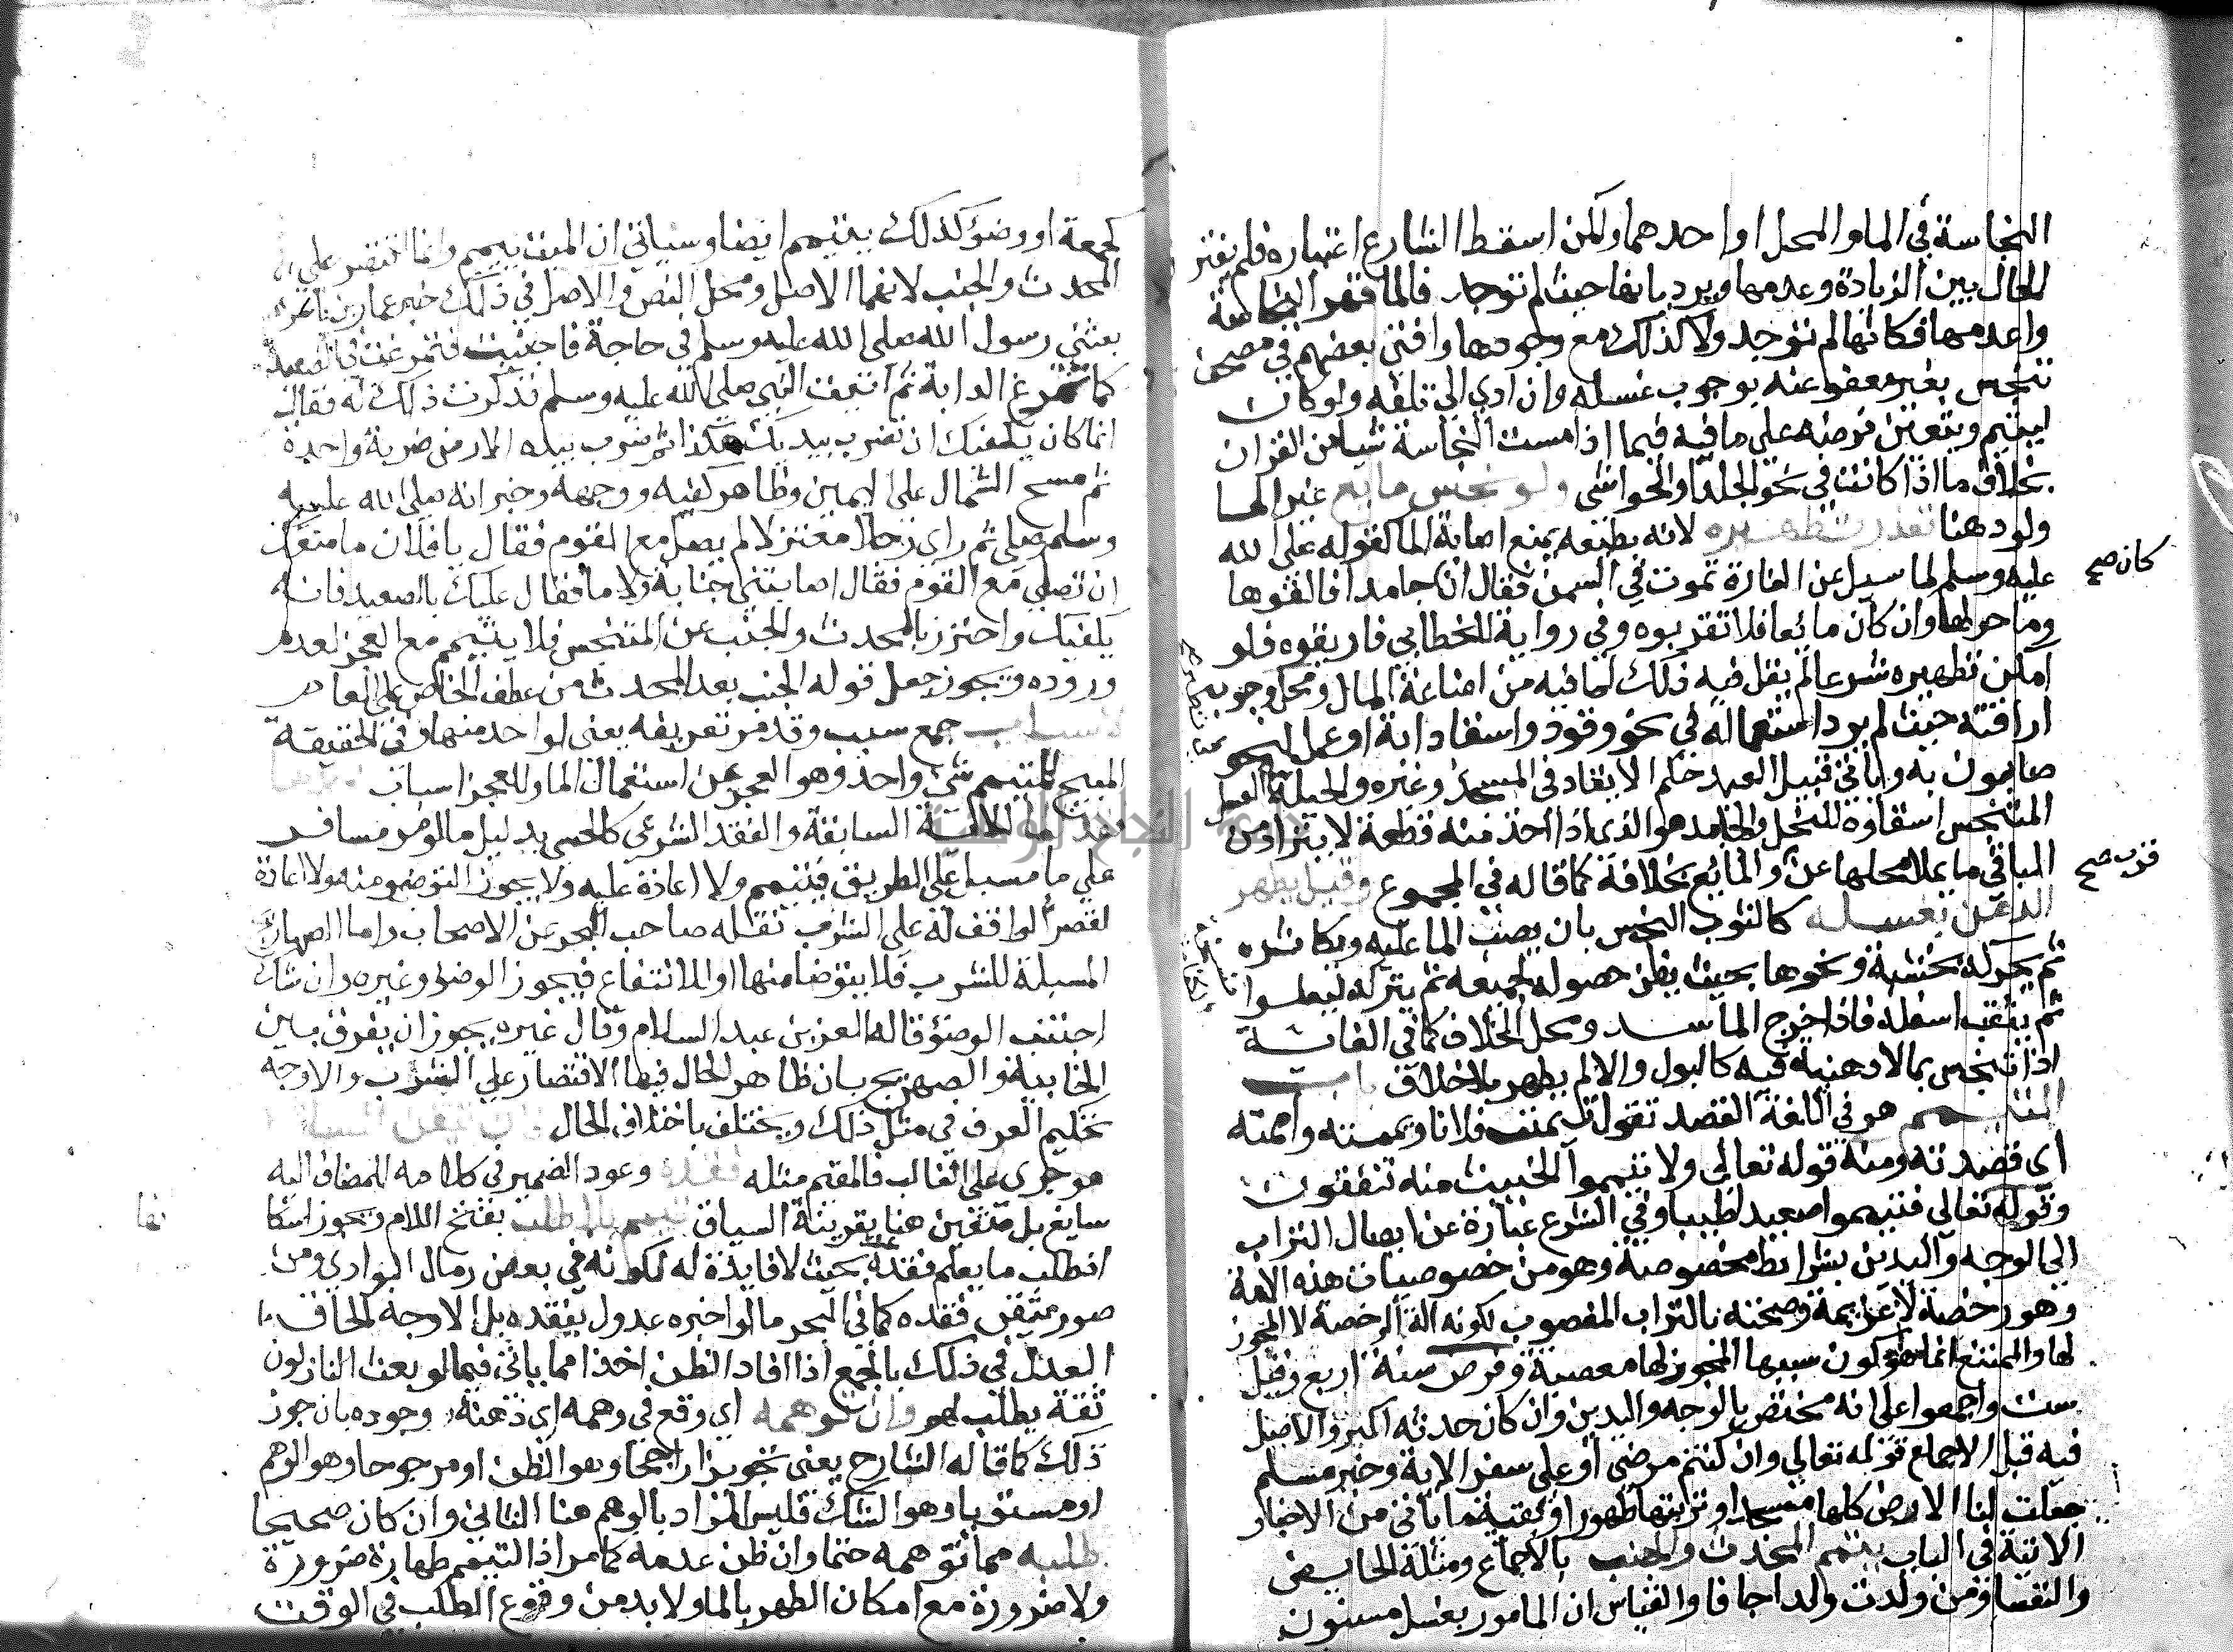 النجاسة في الما والمحل او احدهما ولكن اسقط الشارع اعتباره فلم يفترق
الحال بين الزيادة وعدمها ويرد بانها حيث لم توجد فالما قهر النجاسة
واعدمها فكانها لم توجد ولا كذلك مع وجودها وافتى بعضهم في مصحف
تنجس بغير معفو عنه بوجوب غسله وان ادي الي تلفه ولو كان
ليتيم ويتعين فرضه علي ما فيه فيما اذا مست النجاسة شيا من القران
بخلاف ما اذا كانت في نحو الجلد او الحواشي ولو نجس مايع غير الما
ولو دهنا تعذر تطهيره لانه بطبعه يمنع اصابة الما لقوله صلى الله
عليه وسلم لما سيل عن الفارة تموت في السمن فقال ان جامدا فالقوها
كان صح
وما حولها وان كان مائعا فلا تقربوه وفي رواية للخطابي فاريقوه فلو
امكن تطهيره شرعا لم يقل فيه ذلك لما فيه من اضاعة المال ومحل وجوب
اراقته حيث لم يرد استعماله في نحو وقود واسقا دابة او عمل نحو
صابون به وياتي قبيل العيد حكم الايقاد في المسجد وغيره والحيلة العسل
المتنجس اسقاوه للنحل والجامد هو الذي اذا اخذ منه قطعة لا يتراد من
الباقي ما يملا محلها عن والمايع بخلافه كما قاله في المجموع وقيل يطهر
قرب صح
الدهن بغسله كالثوب النجس بان يصب الما عليه ويكاثره
ثم يحركه بخشبة ونحوها بحيث يظن وصوله لجميعه ثم يتركه ليعلوا
ثم يثقب اسفله فاذا خرج الما سد ومحل الخلاف كما في الكفاية
اذا تنجس بما لا دهنية فيه كالبول والا لم يطهر بلا خلاف باب
التيمم هو في اللغة القصد تقول تيممت فلانا ويممته واممته
اي قصدته ومنه قوله تعالي ولا تيمموا الخبيث منه تنفقون
وقوله تعالي فتيمموا صعيدا طيبا وفي الشرع عبارة عن ايصال التراب
الي الوجه واليدين بشرايط مخصوصة وهو من خصوصيات هذه الامة
وهو رخصة لا عزيمة وصحته بالتراب المغصوب لكونه الة الرخصة لا المجوز
لها والممتنع انما هو كون سببها المجوز لها معصية وفرض سنة اربع وقيل
ست واجمعوا علي انه مختص بالوجه واليدين وان كان حدثه اكبر والاصل
فيه قبل الاجماع قوله تعالي وان كنتم مرضي او علي سفر الاية وخبر مسلم
جعلت لنا الارض كلها مسجدا وتربتها طهورا وبقية ما ياتي من الاخبار
الاتية في الباب يتيمم المحدث والجنب بالاجماع ومثله الحايض
والنفسا ومن ولدت ولدا جافا والقياس ان المامور بغسل مسنون
كجمعة او وضؤ كذلك يتيمم ايضا وسياتي ان الميت ييمم وانما اقتصر علي
المحدث والجنب لانهما الاصل ومحل النص والاصل في ذلك خبر عمار بن ياسر
بعثني رسول الله صلى الله عليه وسلم في حاجة فاجنبت فتمرغت في الصعيد
كما تتمرغ الدابة ثم اتيت النبي صلى الله عليه وسلم فذكرت ذلك له فقال
انما كان يكفيك ان تضرب بيديك هكذا ثم ضرب بيده الارض ضربة واحدة
ثم مسح الشمال على اليمين وظاهر كفيه ووجهه وخبر انه صلى الله عليه
وسلم صلى ثم راي رجلا معتزلا لم يصل مع القوم فقال يا فلان ما منعك
ان تصلي مع القوم فقال اصابتني جنابة ولا ما فقال عليك بالصعيد فانه
يكفيك واحترز بالمحدث والجنب عن المتنجس فلا يتيمم مع العجز لعدم
وروده ويجوز جعل قوله الجنب بعد المحدث من عطف الخاص على العام
لاسباب جمع سبب وقد مر تعريفه يعنى لواحد منها وفي الحقيقة
المبيح للتيمم شي واحد وهو العجز عن استعمال الما وللعجز اسباب
السابقة والفقد الشرعى كالحسى بدليل ما لو مر مسافر
علي ما مسبل علي الطريق فتيمم ولا اعادة عليه ولا يجوز التوضي منه ولا اعادة
لقصر الواقف له على الشرب نقله صاحب البحر عن الاصحاب واما الصهاريج
المسبلة للشرب فلا يتوضا منها او للانتفاع فيجوز الوضو وغيره وان شك
اجتنب الوضؤ قاله العز بن عبد السلام وقال غيره يجوز ان يفرق بين
الخابية والصهريج بان ظاهر الحال فيها الاقتصار علي الشرب والاوجه
تحكيم العرف في مثل ذلك ويختلف باختلاف الحال فان تيقن المسافر
هو جرى على الغالب فالمقيم مثله فقده وعود الضمير في كلامه للمضاف اليه
سايغ بل متعين هنا بقرينة السياق تيمم بلا طلب بفتح اللام ويجوز اسكا
نها
اذ طلب ما يعلم فقده بحيث لا فايدة له لكونه في بعض رمال البوادي ومن
صور تيقن فقده كما في البحر ما لو اخبره عدول بفقده بل الاوجه الحاق
العدل في ذلك بالجمع اذا افاد الظن اخذا مما ياتي فيما لو بعث النازلون
ثقة يطلب لهم وان توهمه اي وقع في وهمه اي ذهنه وجوده بان جوز
ذلك كما قاله الشارح يعنى تجويزا راجحا وهو الظن او مرجوحا وهو الوهم
او مستويا وهو الشك فليس المراد بالوهم هنا الثاني وان كان صحيحا
طلبه مما توهمه حتما وان ظن عدمه كما مر اذ التيمم طهارة ضرورة
ولا ضرورة مع امكان الطهر بالما ولا بد من وقوع الطلب في الوقت